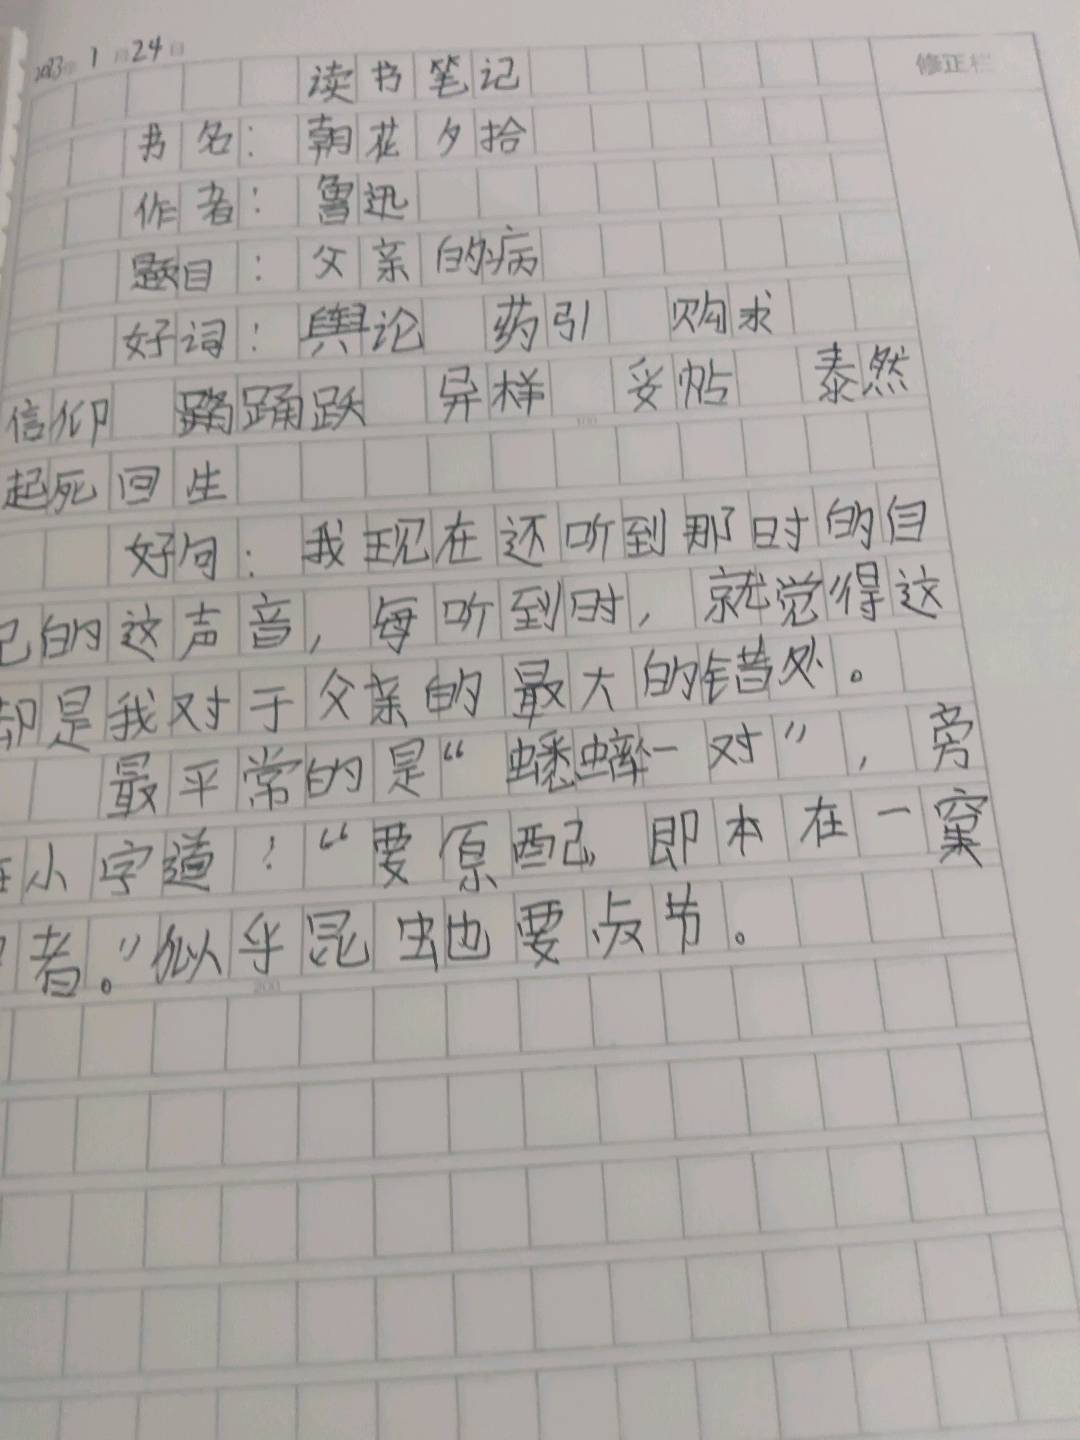 2023年 1月24日
修正栏
读书笔记
书名：朝花夕拾
作者：鲁迅
题目：父亲的病
好词：舆论 药引 购求
信仰 踊跃 异样 妥帖 泰然
起死回生
好句：我现在还听到那时的自
己的这声音，每听到时，就觉得这
却是我对于父亲的最大的错处。
最平常的是“蟋蟀一对”，旁
注小字道：“要原配，即本在一窠
中者。”似乎昆虫也要贞节。
200